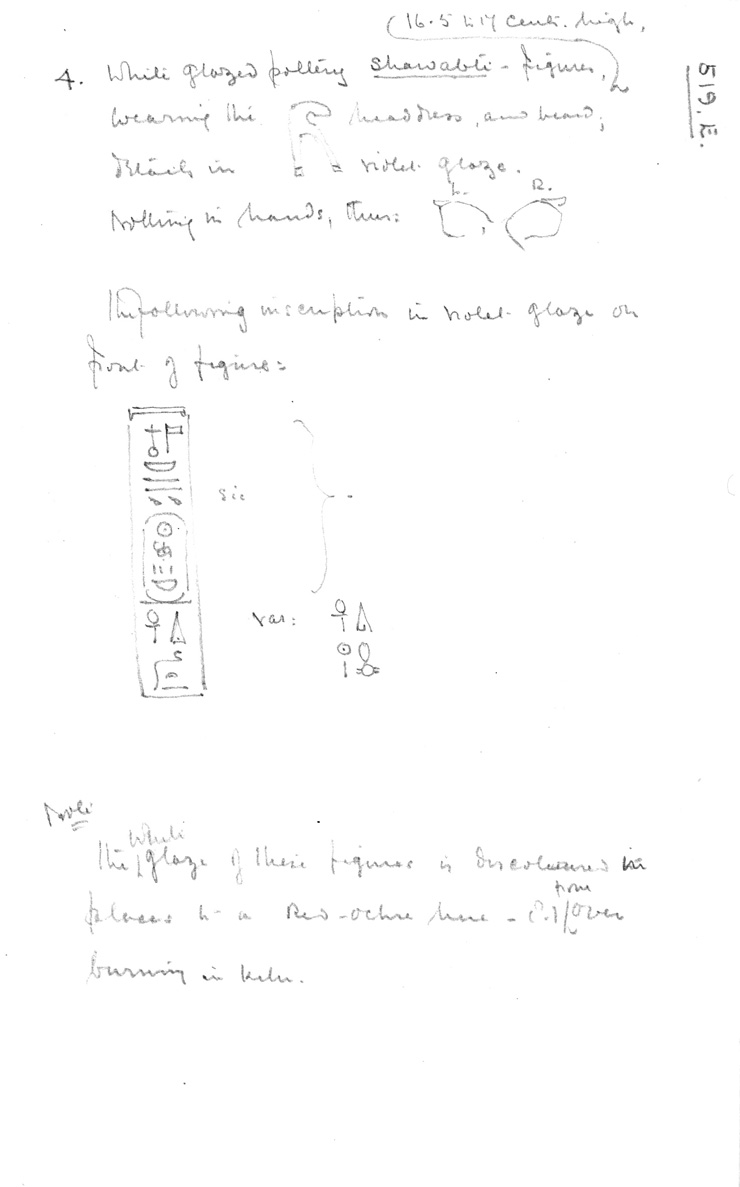 519.E.
(16.5 to 17 cent. high,
4. White glazed pottery Shawabti-figures,
wearing the headdress, and beard;
Details in violet glaze.
L. R.
Nothing in hands, thus:
The following inscription in violet glaze on
front of figure:
sic
𓊹𓄤
var: 𓋹𓏙
𓇳
𓏤
Note
White
The glaze of these figures is discoloured in
from
places to a Red-ochre hue - ? over
burning in kiln.